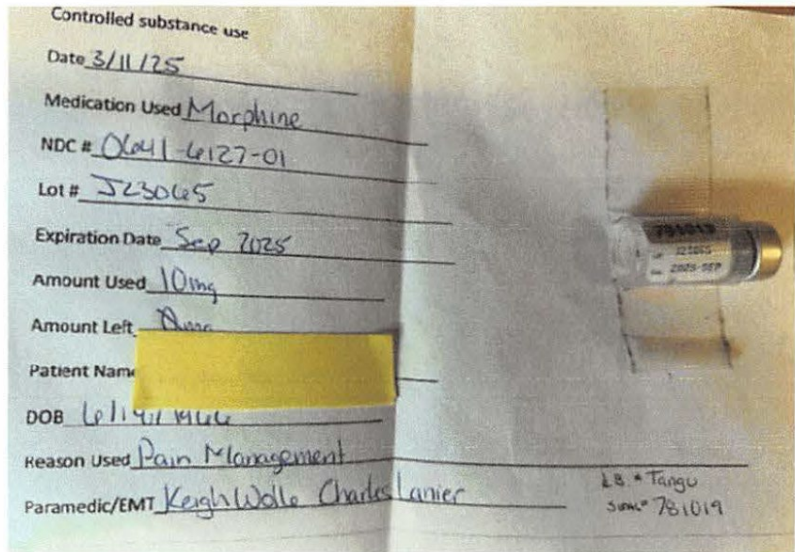 Controlled substance use
Date 3/11/25
Medication Used Morphine
NDC # 0641-6127-01
Lot # J23065
Expiration Date Sep 2025
Amount Used 10mg
Amount Left
Patient Name
DOB
Reason Used Pain Management
Paramedic/EMT Keigh Wolle Charles Lanier
781019
J23065
2025-SEP
Tango
781019